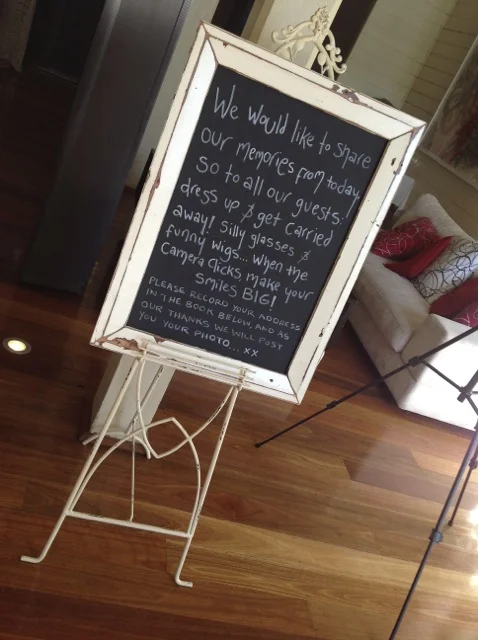 We would like to share
our memories from today,
so to all our guests:
dress up & get carried
away! Silly glasses &
funny wigs... When the
Camera Clicks make your
Smiles BIG!
PLEASE RECORD YOUR ADDRESS
IN THE BOOK BELOW, AND AS
OUR THANKS WE WILL POST
YOU YOUR PHOTO... xx